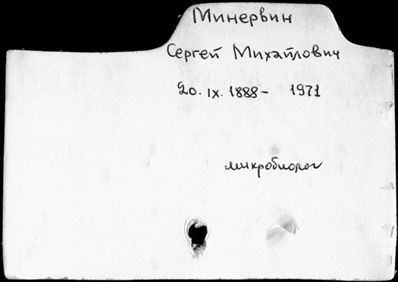 Минервин
Сергей Михайлович
20. IX. 1888 - 1971
микробиолог